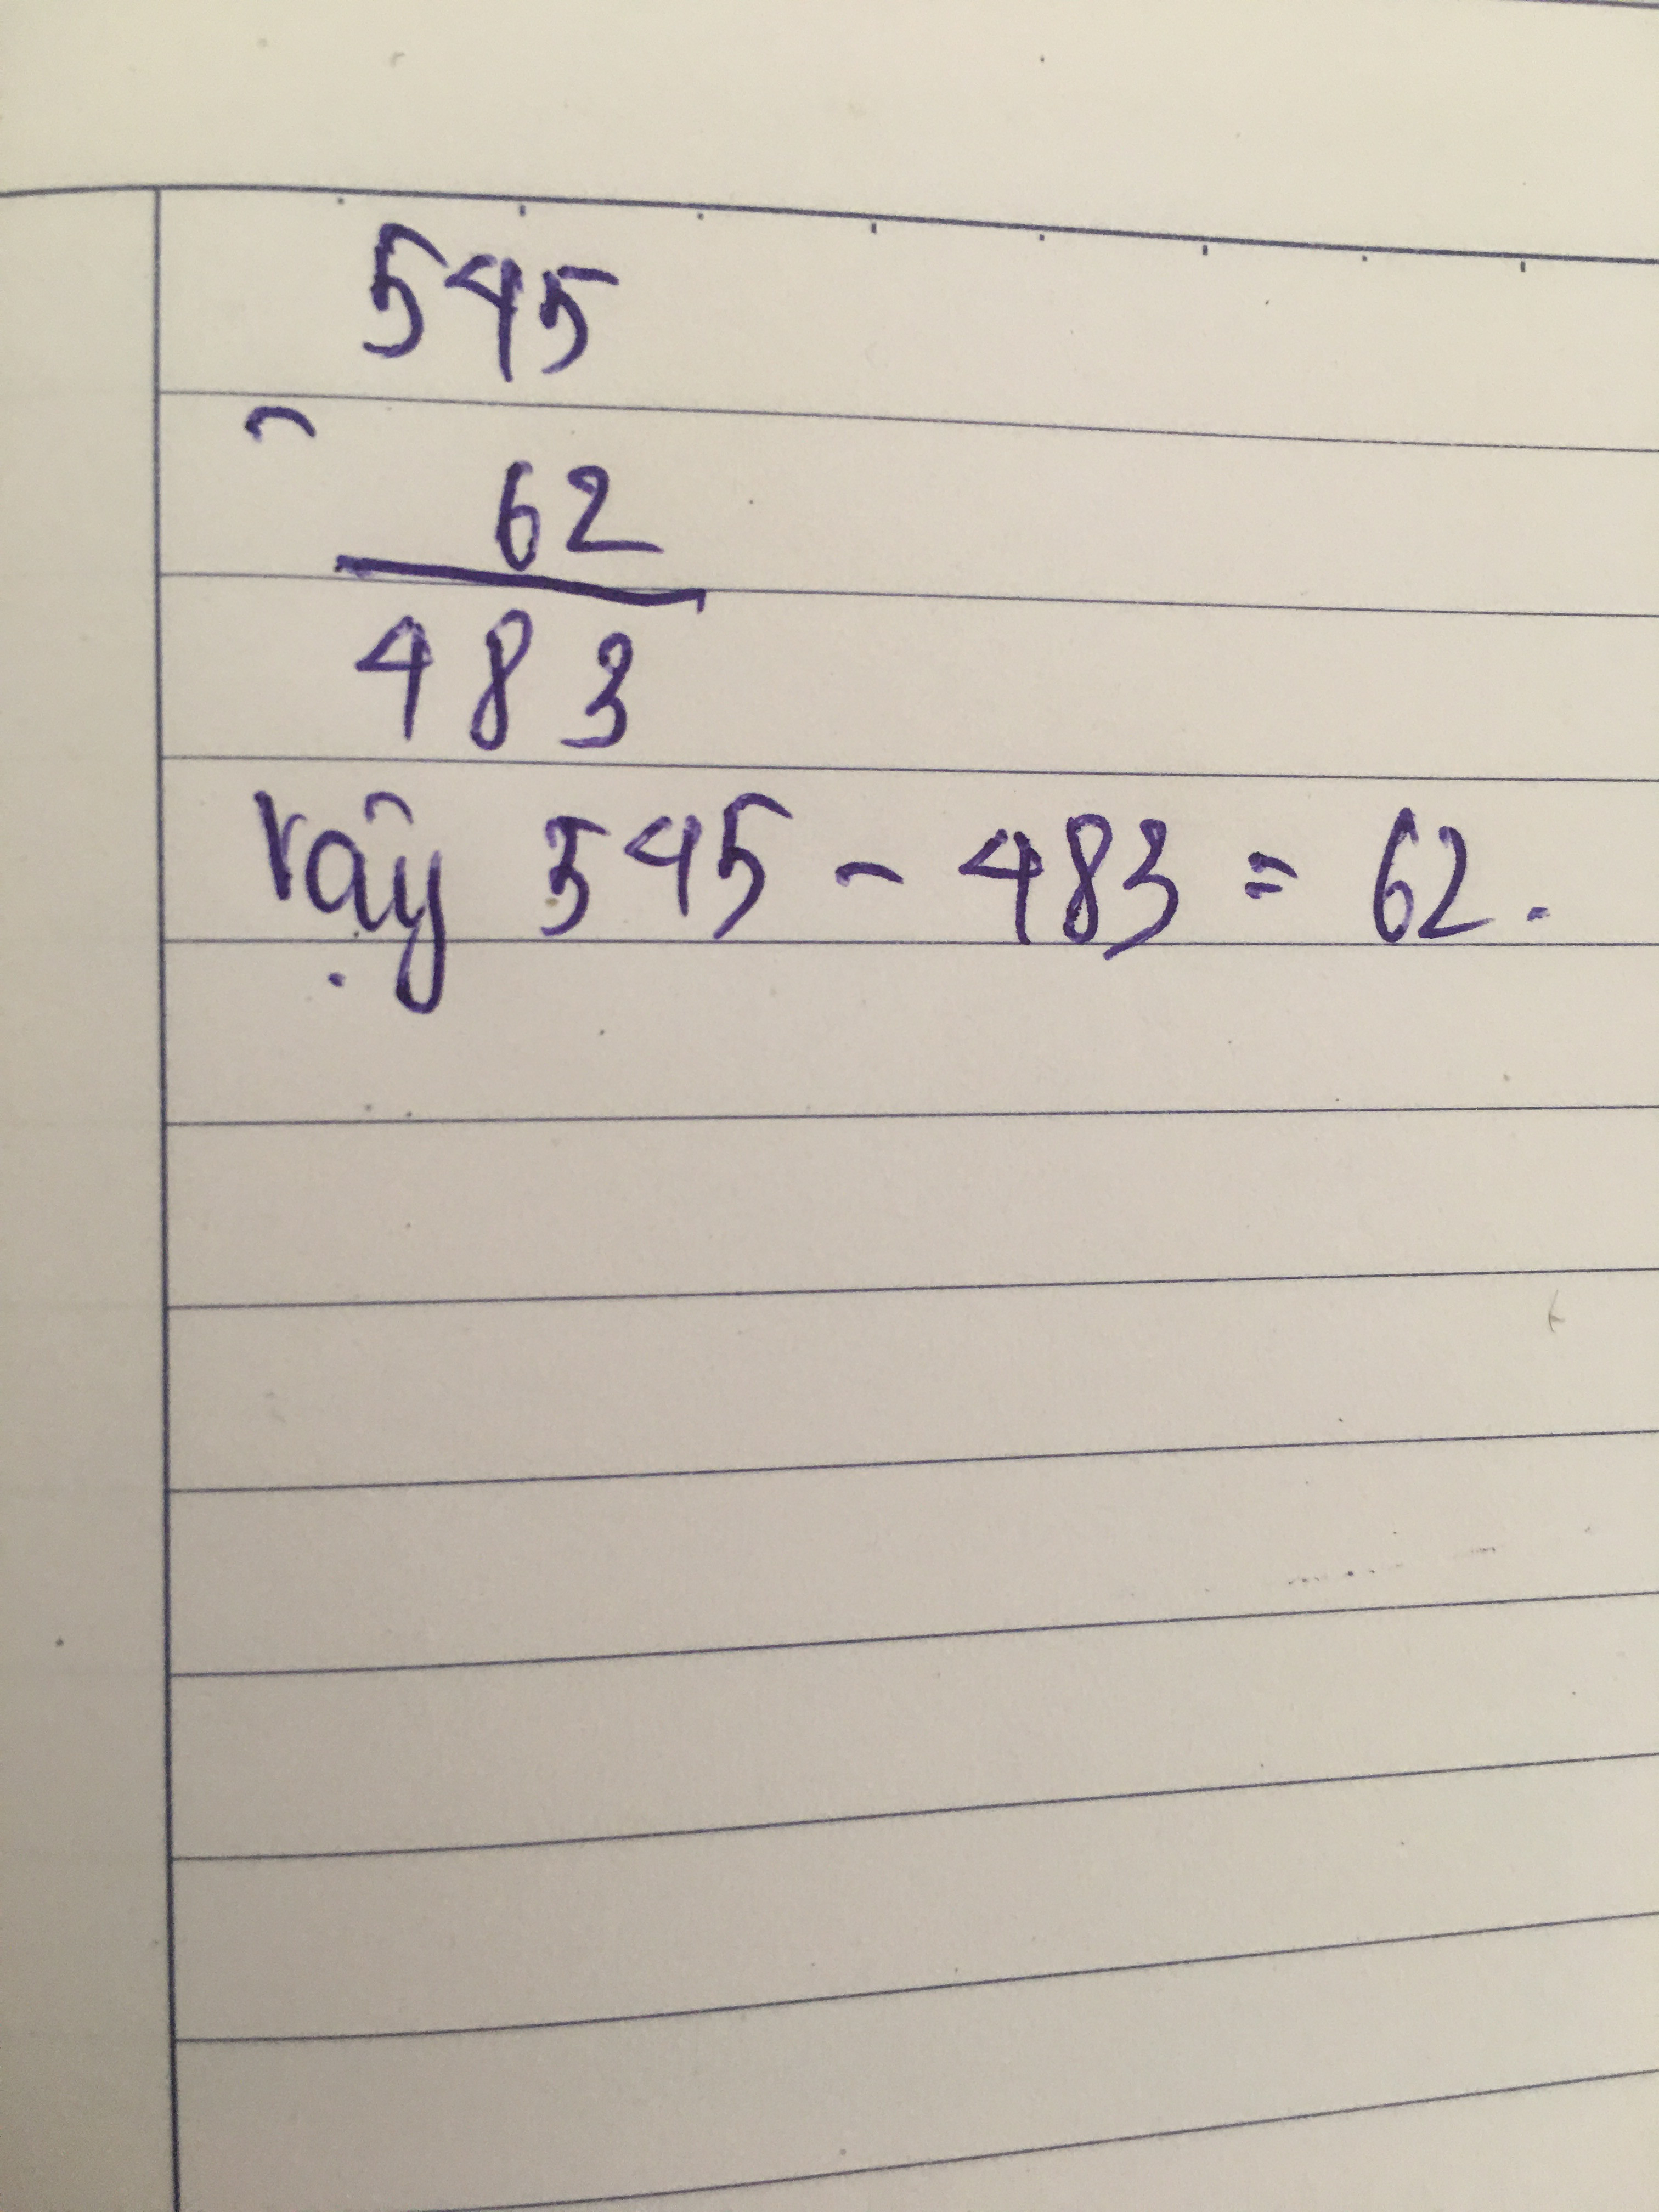 545
-
62
483
Vậy 545 - 483 = 62.